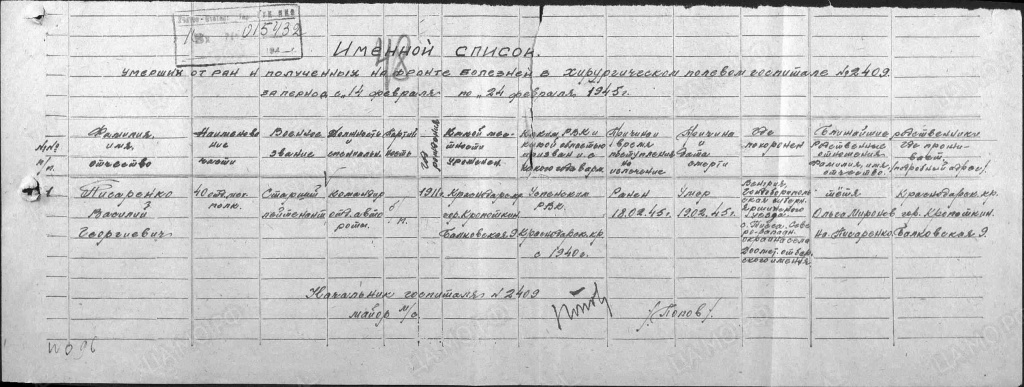 015432
48
Именной список
умерших от ран и полученных на фронте болезней в хирургическом полевом госпитале №2409
за период с „14 февраля по „24 февраля 1945г.
№№ п/п.
Фамилия, имя, отчество
Наименование части
Военное звание
Должность и специальн.
Партийность
Год рождения
Какой местности уроженец
Каким РВК и какой областью призван и с какого года в арк.
Причина и время поступления на излечение
Причина и дата смерти
Где похоронен
Ближайшие родственники
Родственные отношения, фамилия, имя, отчество.
Где проживают (подробный адрес)
1
Писаренко Василий Георгиевич
40 отд. мог. полк.
Старший лейтенант
командир отд. авто роты.
б/п.
1911г.
Краснодарск. гор. Кропоткин Балковская 9.
Успенским РВК. Краснодарск. кр. с 1940г.
Ранен 18.02.45г.
Умер 19.02.45г.
Венгрия,
тётя Ольга Мироновна Писаренко
Краснодарск. кр. гор. Кропоткин. Балковская 9.
Начальник госпиталя №2409
майор м/с
/Попов/.
ЦАМО РФ